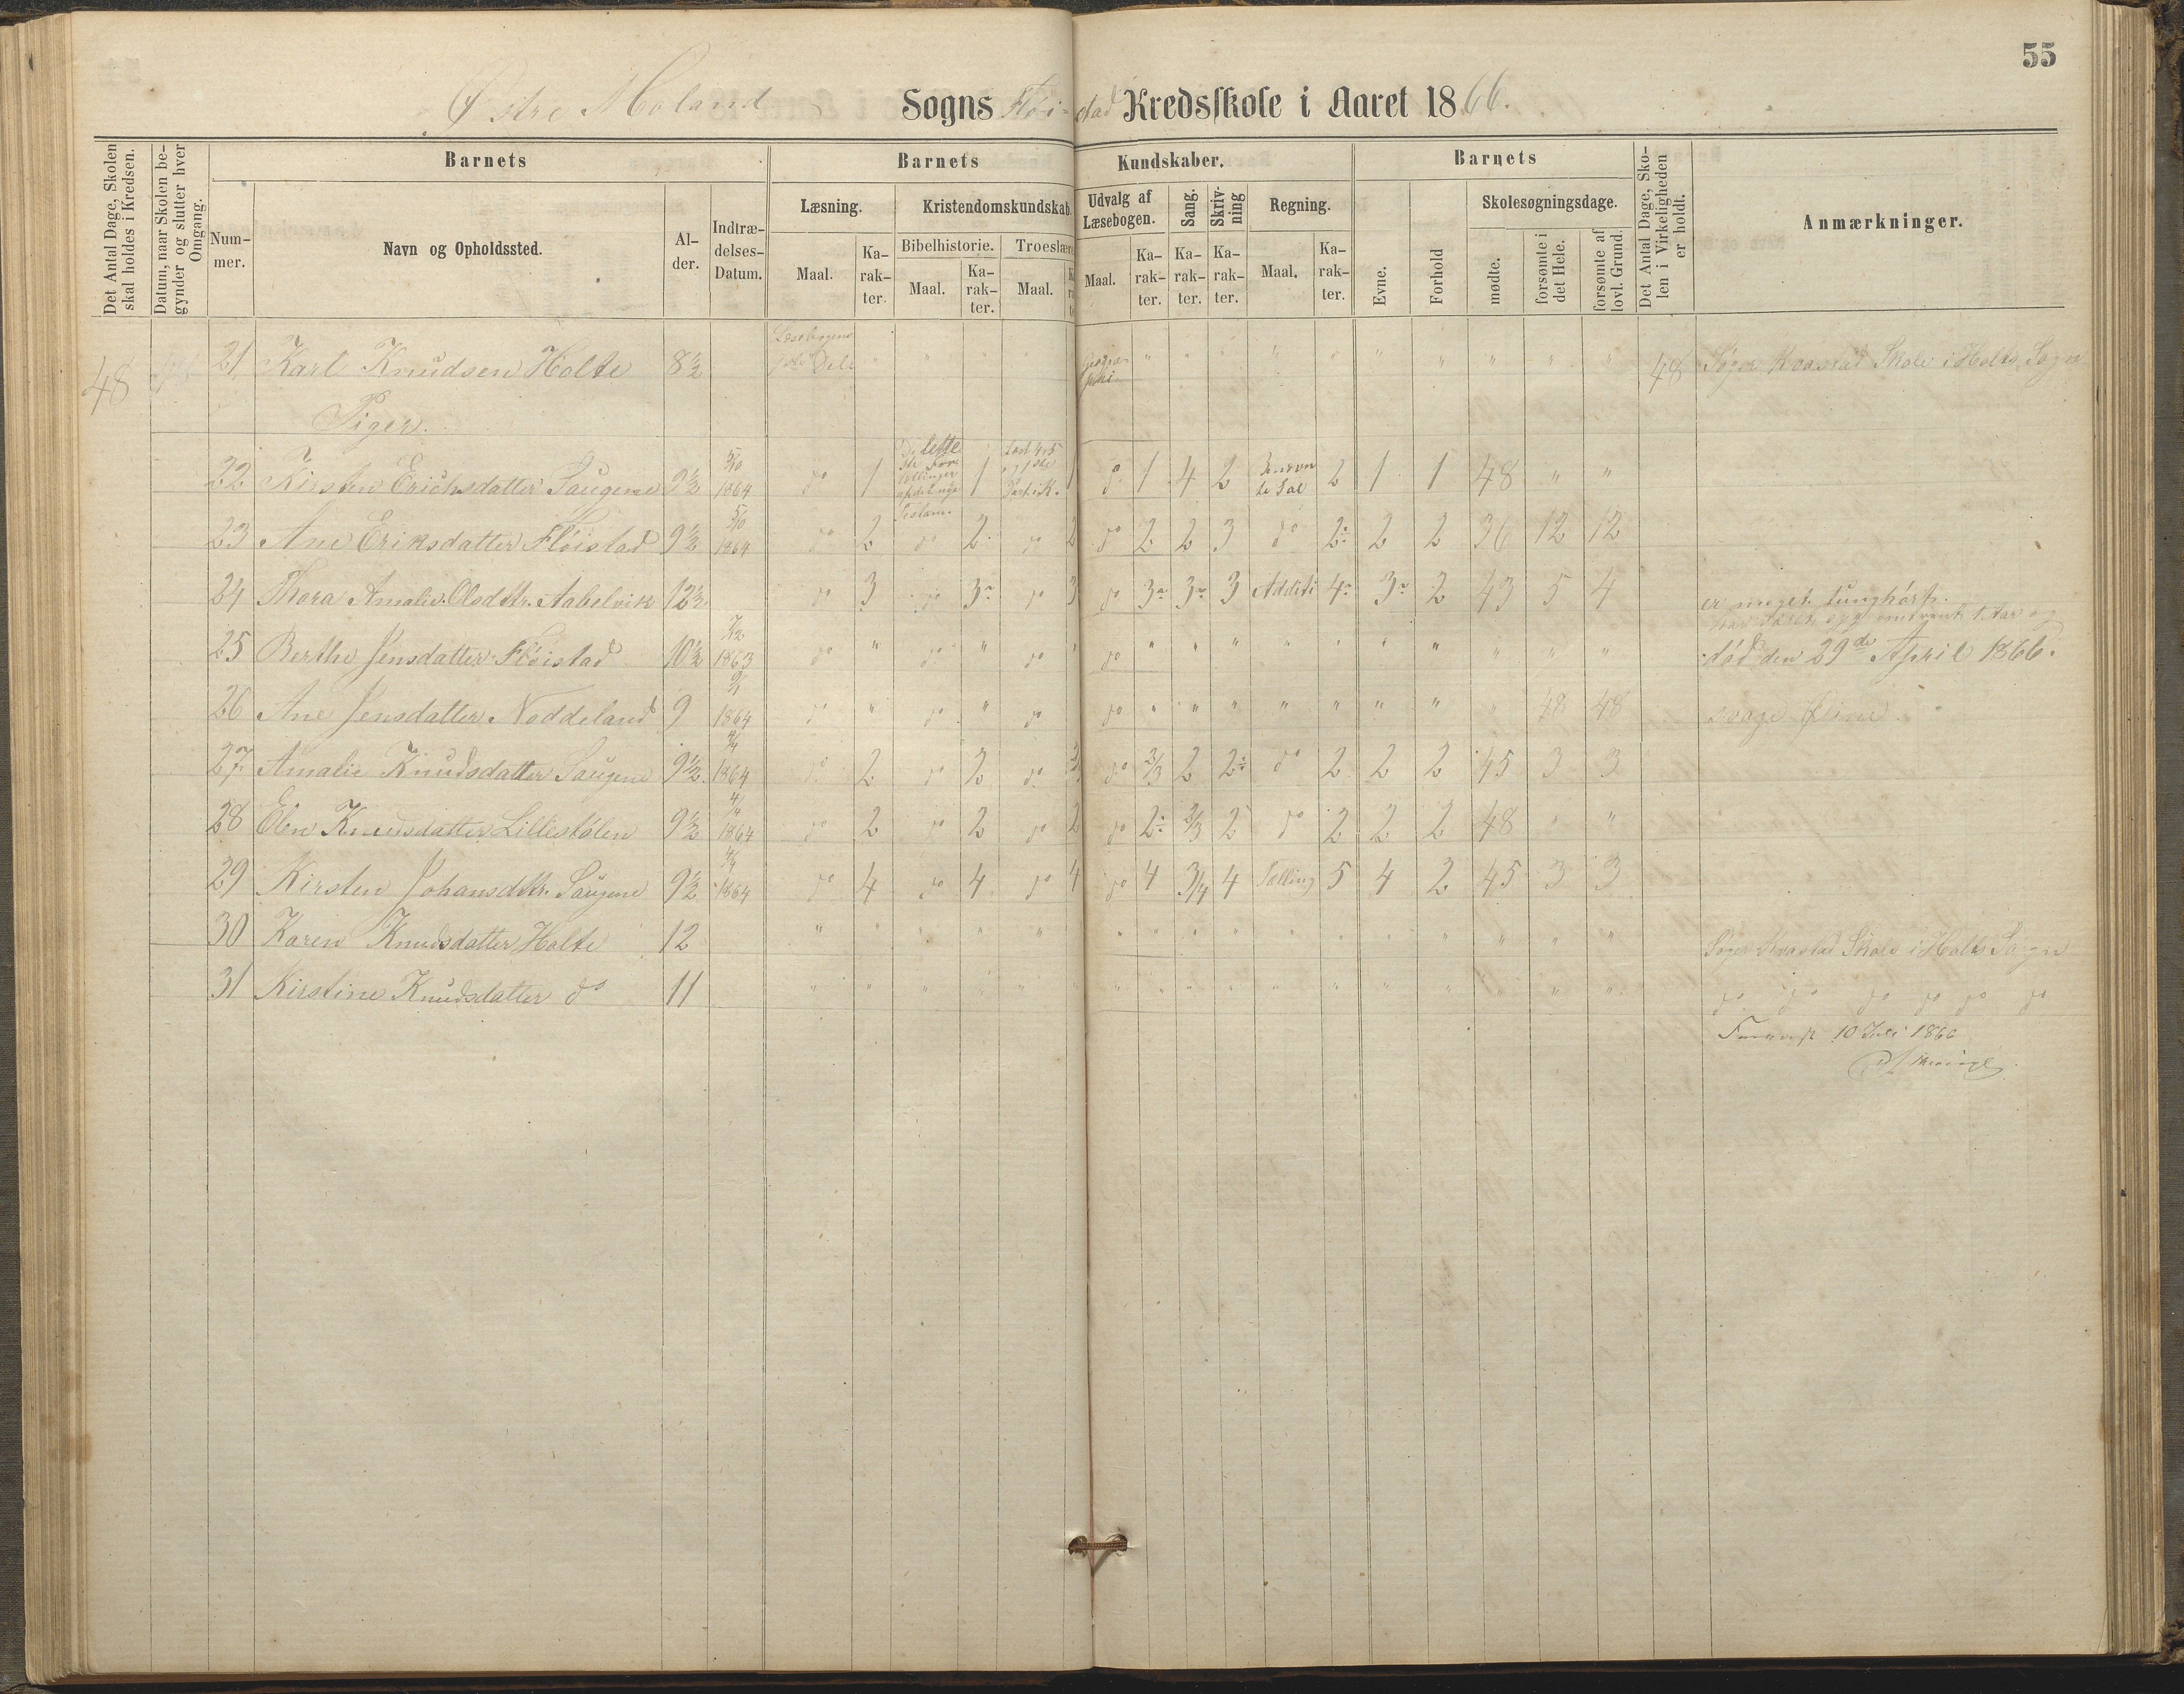 55
Østre Moland Sogns Fløistad Kredsskole i Aaret 1866.
Det Antal Dage, Skolen skal holdes i Kredsen.
Datum, naar Skolen begynder og slutter hver Omgang.
Barnets
Nummer.
Navn og Opholdssted.
Alder.
Indtrædelses-Datum.
Barnets Kundskaber.
Læsning.
Maal.
Karakter.
Kristendomskundskab.
Bibelhistorie.
Maal.
Karakter.
Troeslære
Maal.
Udvalg af Læsebogen.
Maal.
Karakter.
Sang.
Karakter.
Skrivning
Karakter.
Regning.
Maal.
Karakter.
Barnets
Evne.
Forhold
Skolesøgningsdage.
mødte.
forsømte i det Hele.
forsømte af lovl. Grund.
Det Antal Dage, Skolen i Virkeligheden er holdt.
Anmærkninger.
48 21 Karl Knudsen Holte 8½ Læsebogens Dele " " " Geografi " " " " " " " " " " 48 Søger Kvastad Skole i Holts Sogn
Piger.
22 Kirsten Erichsdatter Saugene 9½ 5/10 1864 do 1 1 1 do 1 4 2 2 1 1 48 " "
23 Ane Eriksdatter Fløistad 9½ 5/10 1864 do 2 do 2 do 2 do 2 2 3 do 2÷ 2 2 36 12 12
24 Thora Amalie Olsdttr. Aabelvik 12½ do 3 do 3 do 3 do 3 3 3 Additi 4 3 2 43 5 4 er meget tunghørt.
25 Berthe Jensdatter Fløistad 10½ 7/12 1863 do " do " do " do " " " " " " " " " " død den 29de April 1866.
26 Ane Jensdatter Noddeland 9 1864 do " do " do do " " " " " " " " 48 48 svage Øine.
27 Amalie Knudsdatter Saugene 9½ 4/4 1864 do 2 do 2 do 2/3 do 2/3 2 2÷ do 2 2 2 45 3 3
28 Elen Knudsdatter Lillestølen 9½ 4/4 1864 do 2 do 2 do 2 do 2÷ 2/3 2 do 2 2 2 48 " "
29 Kirsten Johansdttr. Saugene 9½ 4/4 1864 do 4 do 4 do 4 do 4 3/4 4 Tælling 5 4 2 45 3 3
30 Karen Knudsdatter Holte 12 " " " " " " " " " " " " " " " " Søger Kvastad Skole i Holts Sogn
31 Kirstine Knudsdatter do 11 " " " " " " " " " " " " " " " " do do do do do do
10 Juli 1866